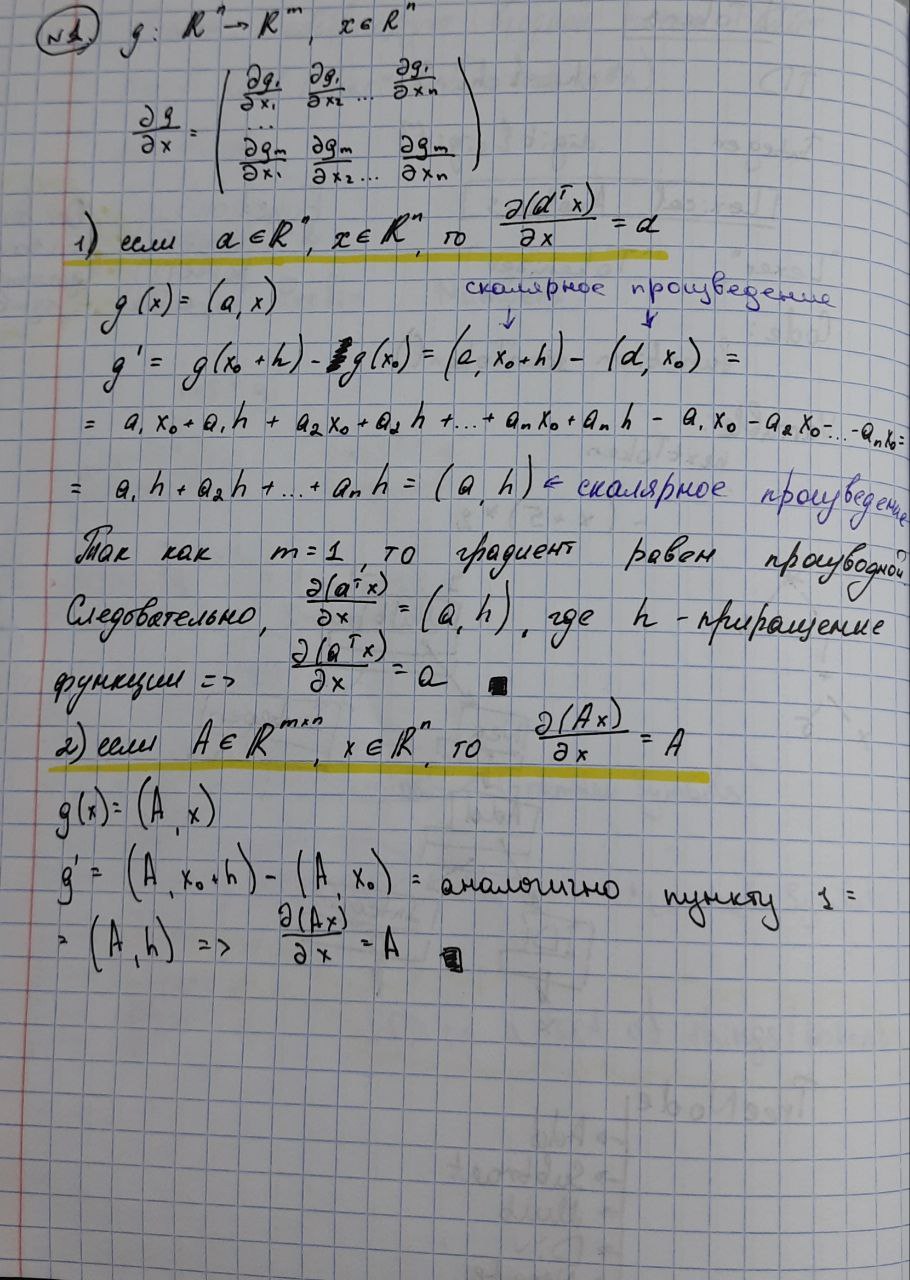 №1. g: ℝⁿ → ℝᵐ, x ∈ ℝⁿ
∂g/∂x = ( ∂g₁/∂x₁ ∂g₁/∂x₂ ... ∂g₁/∂xₙ
...
∂gₘ/∂x₁ ∂gₘ/∂x₂ ... ∂gₘ/∂xₙ )
1) если a ∈ ℝⁿ, x ∈ ℝⁿ, то ∂(aᵀx)/∂x = a
g(x) = (a, x)
скалярное произведение
g' = g(x₀ + h) - g(x₀) = (a, x₀ + h) - (a, x₀) =
= a₁x₀ + a₁h + a₂x₀ + a₂h + ... + aₙx₀ + aₙh - a₁x₀ - a₂x₀ - ... - aₙx₀ =
= a₁h + a₂h + ... + aₙh = (a, h) ← скалярное произведение
Так как m = 1, то градиент равен производной.
Следовательно, ∂(aᵀx)/∂x = (a, h), где h - приращение
функции => ∂(aᵀx)/∂x = a ■
2) если A ∈ ℝᵐˣⁿ, x ∈ ℝⁿ, то ∂(Ax)/∂x = A
g(x) = (A, x)
g' = (A, x₀ + h) - (A, x₀) = аналогично пункту 1 =
= (A, h) => ∂(Ax)/∂x = A ■